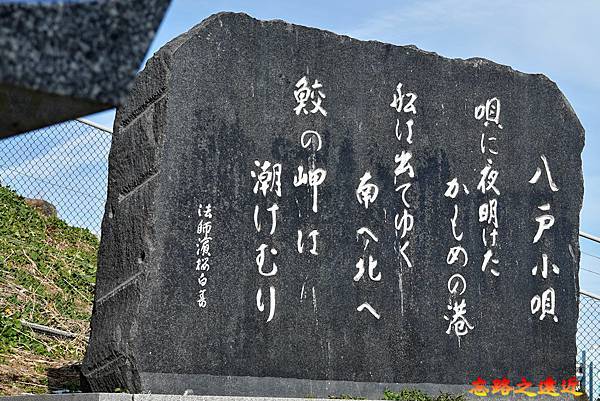 八戸小唄
唄に夜明けた
かもめの港
船は出てゆく
南へ北へ
鮫の岬は
潮けむり
法師濱桜白書
忘路之遠近